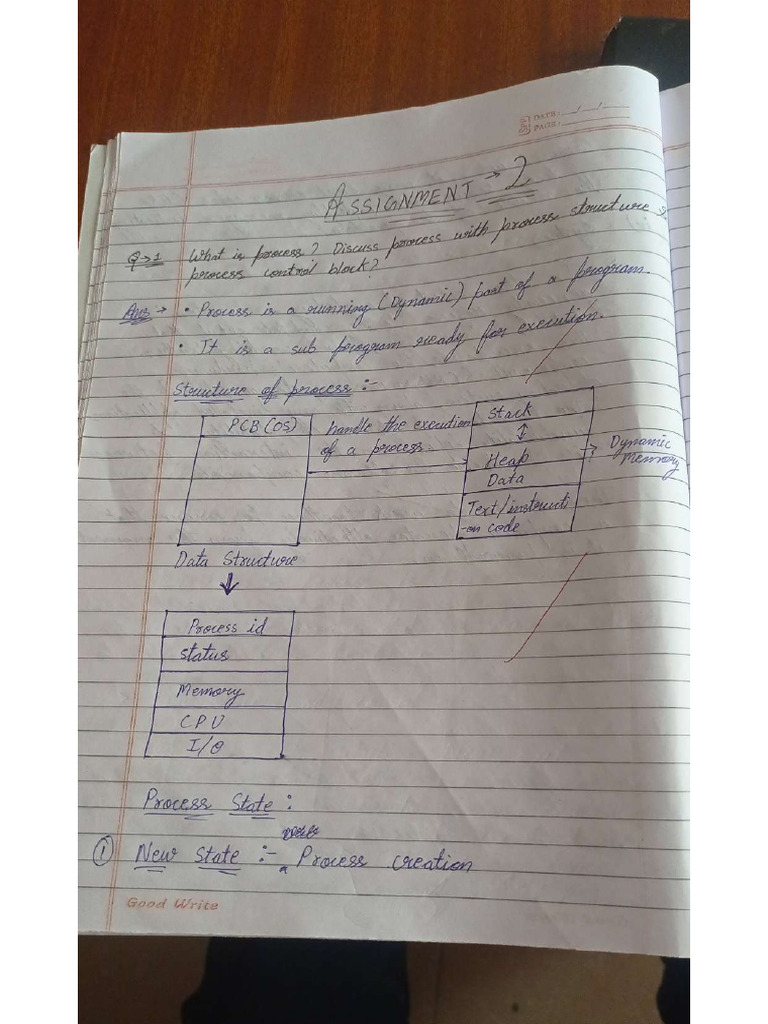 DATE: __/__/__
PAGE: ______
ASSIGNMENT → 2
Q→1 What is process? Discuss process with process structure &
process control block?
Ans → • Process is a running (Dynamic) part of a program.
• It is a sub program ready for execution.
Structure of process :-
PCB (OS)
handle the execution
of a process.
Stack
↕
Heap
Data
Text/instructi
-on code
→ Dynamic
Memory
Data Structure
↓
Process id
Status
Memory
CPU
I/O
Process State :
① New State :- a Process creation
Good Write